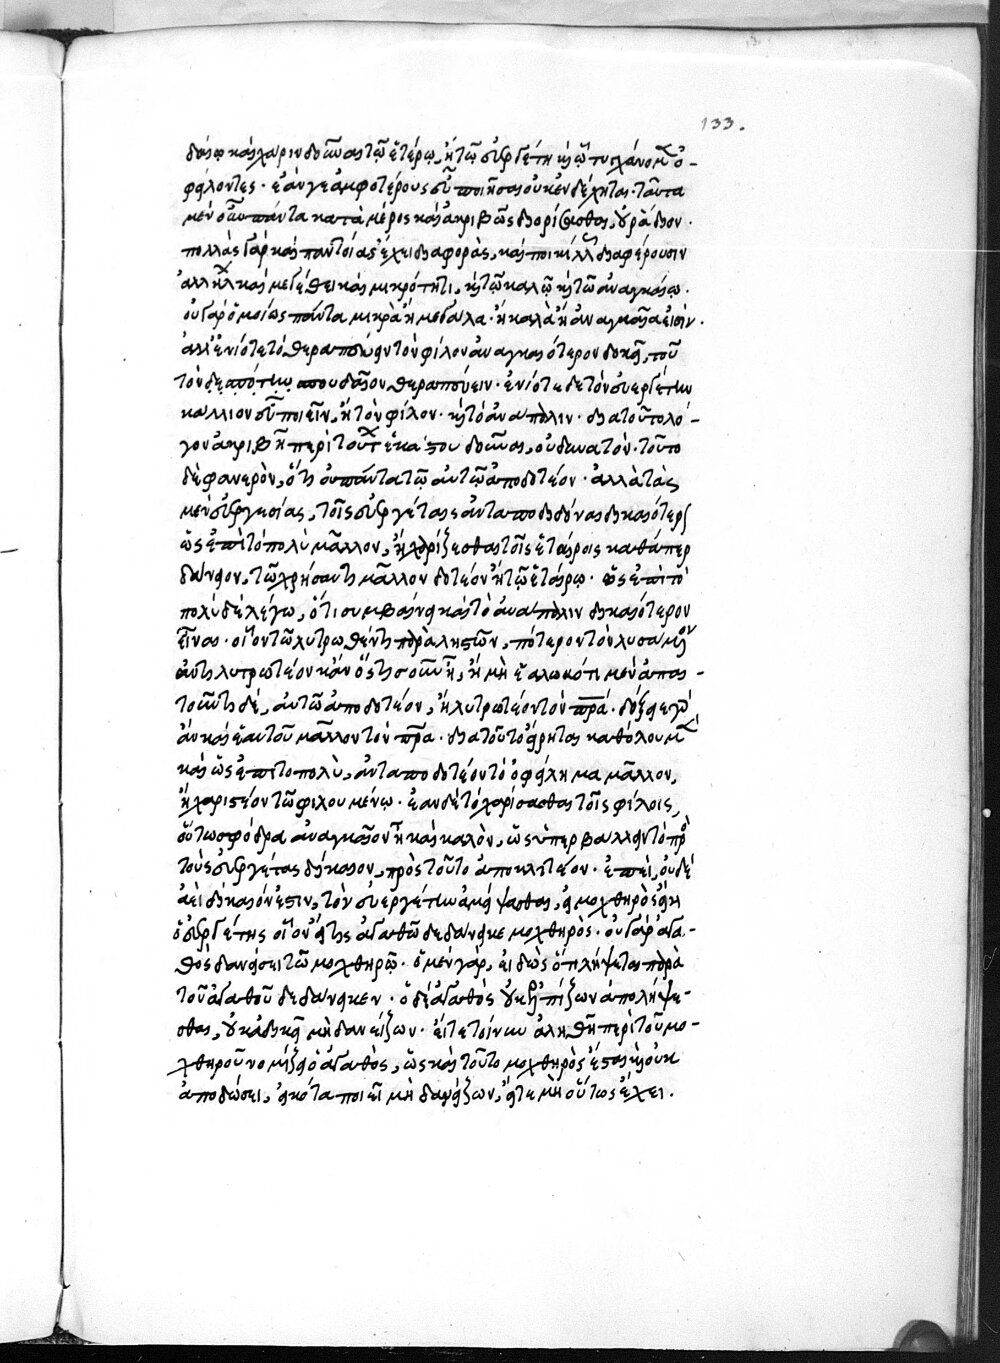 133.
δαίῳ καὶ χάριν δοῦναι τῷ ἑτέρῳ, ἢ τῷ εὐεργέτῃ καὶ ᾧ τυγχάνομεν ὀ-
φείλοντες· ἐάν γε ἀμφοτέρους εὖ ποιῆσαι οὐκ ἐνδέχηται· ταῦτα
μὲν οὖν πάντα κατὰ μέρος καὶ ἀκριβῶς διορίσασθαι, οὐ ῥᾴδιον·
πολλὰς γὰρ καὶ παντοίας ἔχει διαφορὰς, καὶ ποικίλως διαφέρουσιν
ἀλλήλων καὶ μεγέθει καὶ μικρότητι, καὶ τῷ καλῷ καὶ τῷ ἀναγκαίῳ·
οὐ γὰρ ὁμοίως πάντα μικρὰ ἢ μεγάλα· ἢ καλὰ ἢ ἀναγκαῖα εἰσίν.
ἀλλ' ἐνίοτε τὸ θεραπεύειν τὸν φίλον ἀναγκαιότερον δοκεῖ, τοῦ
τὸν δεσπότην σπουδαῖον θεραπεύειν· ἐνίοτε δὲ τὸν εὐεργέτην
κάλλιον εὖ ποιεῖν, ἢ τὸν φίλον· καὶ τὸ ἀνάπαλιν· διὰ τοῦτο λό-
γον ἀκριβῆ περὶ τούτων ἑκάστου δοῦναι, οὐ δυνατόν· τοῦτο
δὲ φανερὸν, ὅτι οὐ πάντα τῷ αὐτῷ ἀποδοτέον· ἀλλὰ τὰς
μὲν εὐεργεσίας, τοῖς εὐεργέταις ἀνταποδιδόναι δικαιότερον
ὡς ἐπὶ τὸ πολὺ μᾶλλον, ἢ χαρίζεσθαι τοῖς ἑταίροις καθάπερ
δάνειον, τῷ χρήσαντι μᾶλλον δοτέον ἢ τῷ ἑταίρῳ· ὡς ἐπὶ τὸ
πολὺ δὲ λέγω, ὅτι συμβαίνει καὶ τὸ ἀνάπαλιν δικαιότερον
εἶναι· οἷον τῷ λυτρωθέντι παρὰ λῃστῶν, πότερον τὸν λυσάμενον
ἀντιλυτρωτέον κἂν ὅστις οὖν ᾖ, ἢ μὴ ἑαλωκότι μὲν ἀπαι-
τοῦντι δὲ, αὐτῷ ἀποδοτέον, ἢ λυτρωτέον τὸν πρα· δόξειε γὰρ
ἂν καὶ ἑαυτοῦ μᾶλλον τὸν πρα· διὰ τοῦτο εἴρηται καθόλου μὲν
καὶ ὡς ἐπὶ τὸ πολὺ, ἀνταποδοτέον τὸ ὀφείλημα μᾶλλον,
ἢ χαριστέον τῷ φιλουμένῳ· ἐὰν δὲ τὸ χαρίσασθαι τοῖς φίλοις,
οὕτω σφόδρα ἀναγκαῖον ᾖ καὶ καλὸν, ὡς ὑπερβάλλειν τὸ πρὸς
τοὺς εὐεργέτας δίκαιον, πρὸς τοῦτο ἀποκλιτέον· ἐπεὶ, οὐδὲ
ἀεὶ δίκαιόν ἐστιν, τὸν εὐεργέτην ἀμείψασθαι, εἰ μοχθηρὸς εἴη
ὁ εὐεργέτης οἷον εἴ τις ἀγαθῷ δεδάνεικε μοχθηρὸς· οὐ γὰρ ἀγα-
θὸς δανείσει τῷ μοχθηρῷ· ὁ μὲν γὰρ, εἰδὼς ὅτι λήψεται παρὰ
τοῦ ἀγαθοῦ δεδάνεικεν· ὁ δὲ ἀγαθὸς οὐκ ἐλπίζων ἀπολήψε-
σθαι, οὐκ ἀδικεῖ μὴ δανείζων· εἴτε τοίνυν ἀληθῆ περὶ τοῦ μο-
χθηροῦ νομίζει ὁ ἀγαθὸς, ὡς καὶ τοῦτο μοχθηρὸς ἐστι καὶ οὐκ
ἀποδώσει, εἰκότα ποιεῖ μὴ δανείζων, εἴτε μὴ οὕτως ἔχει.